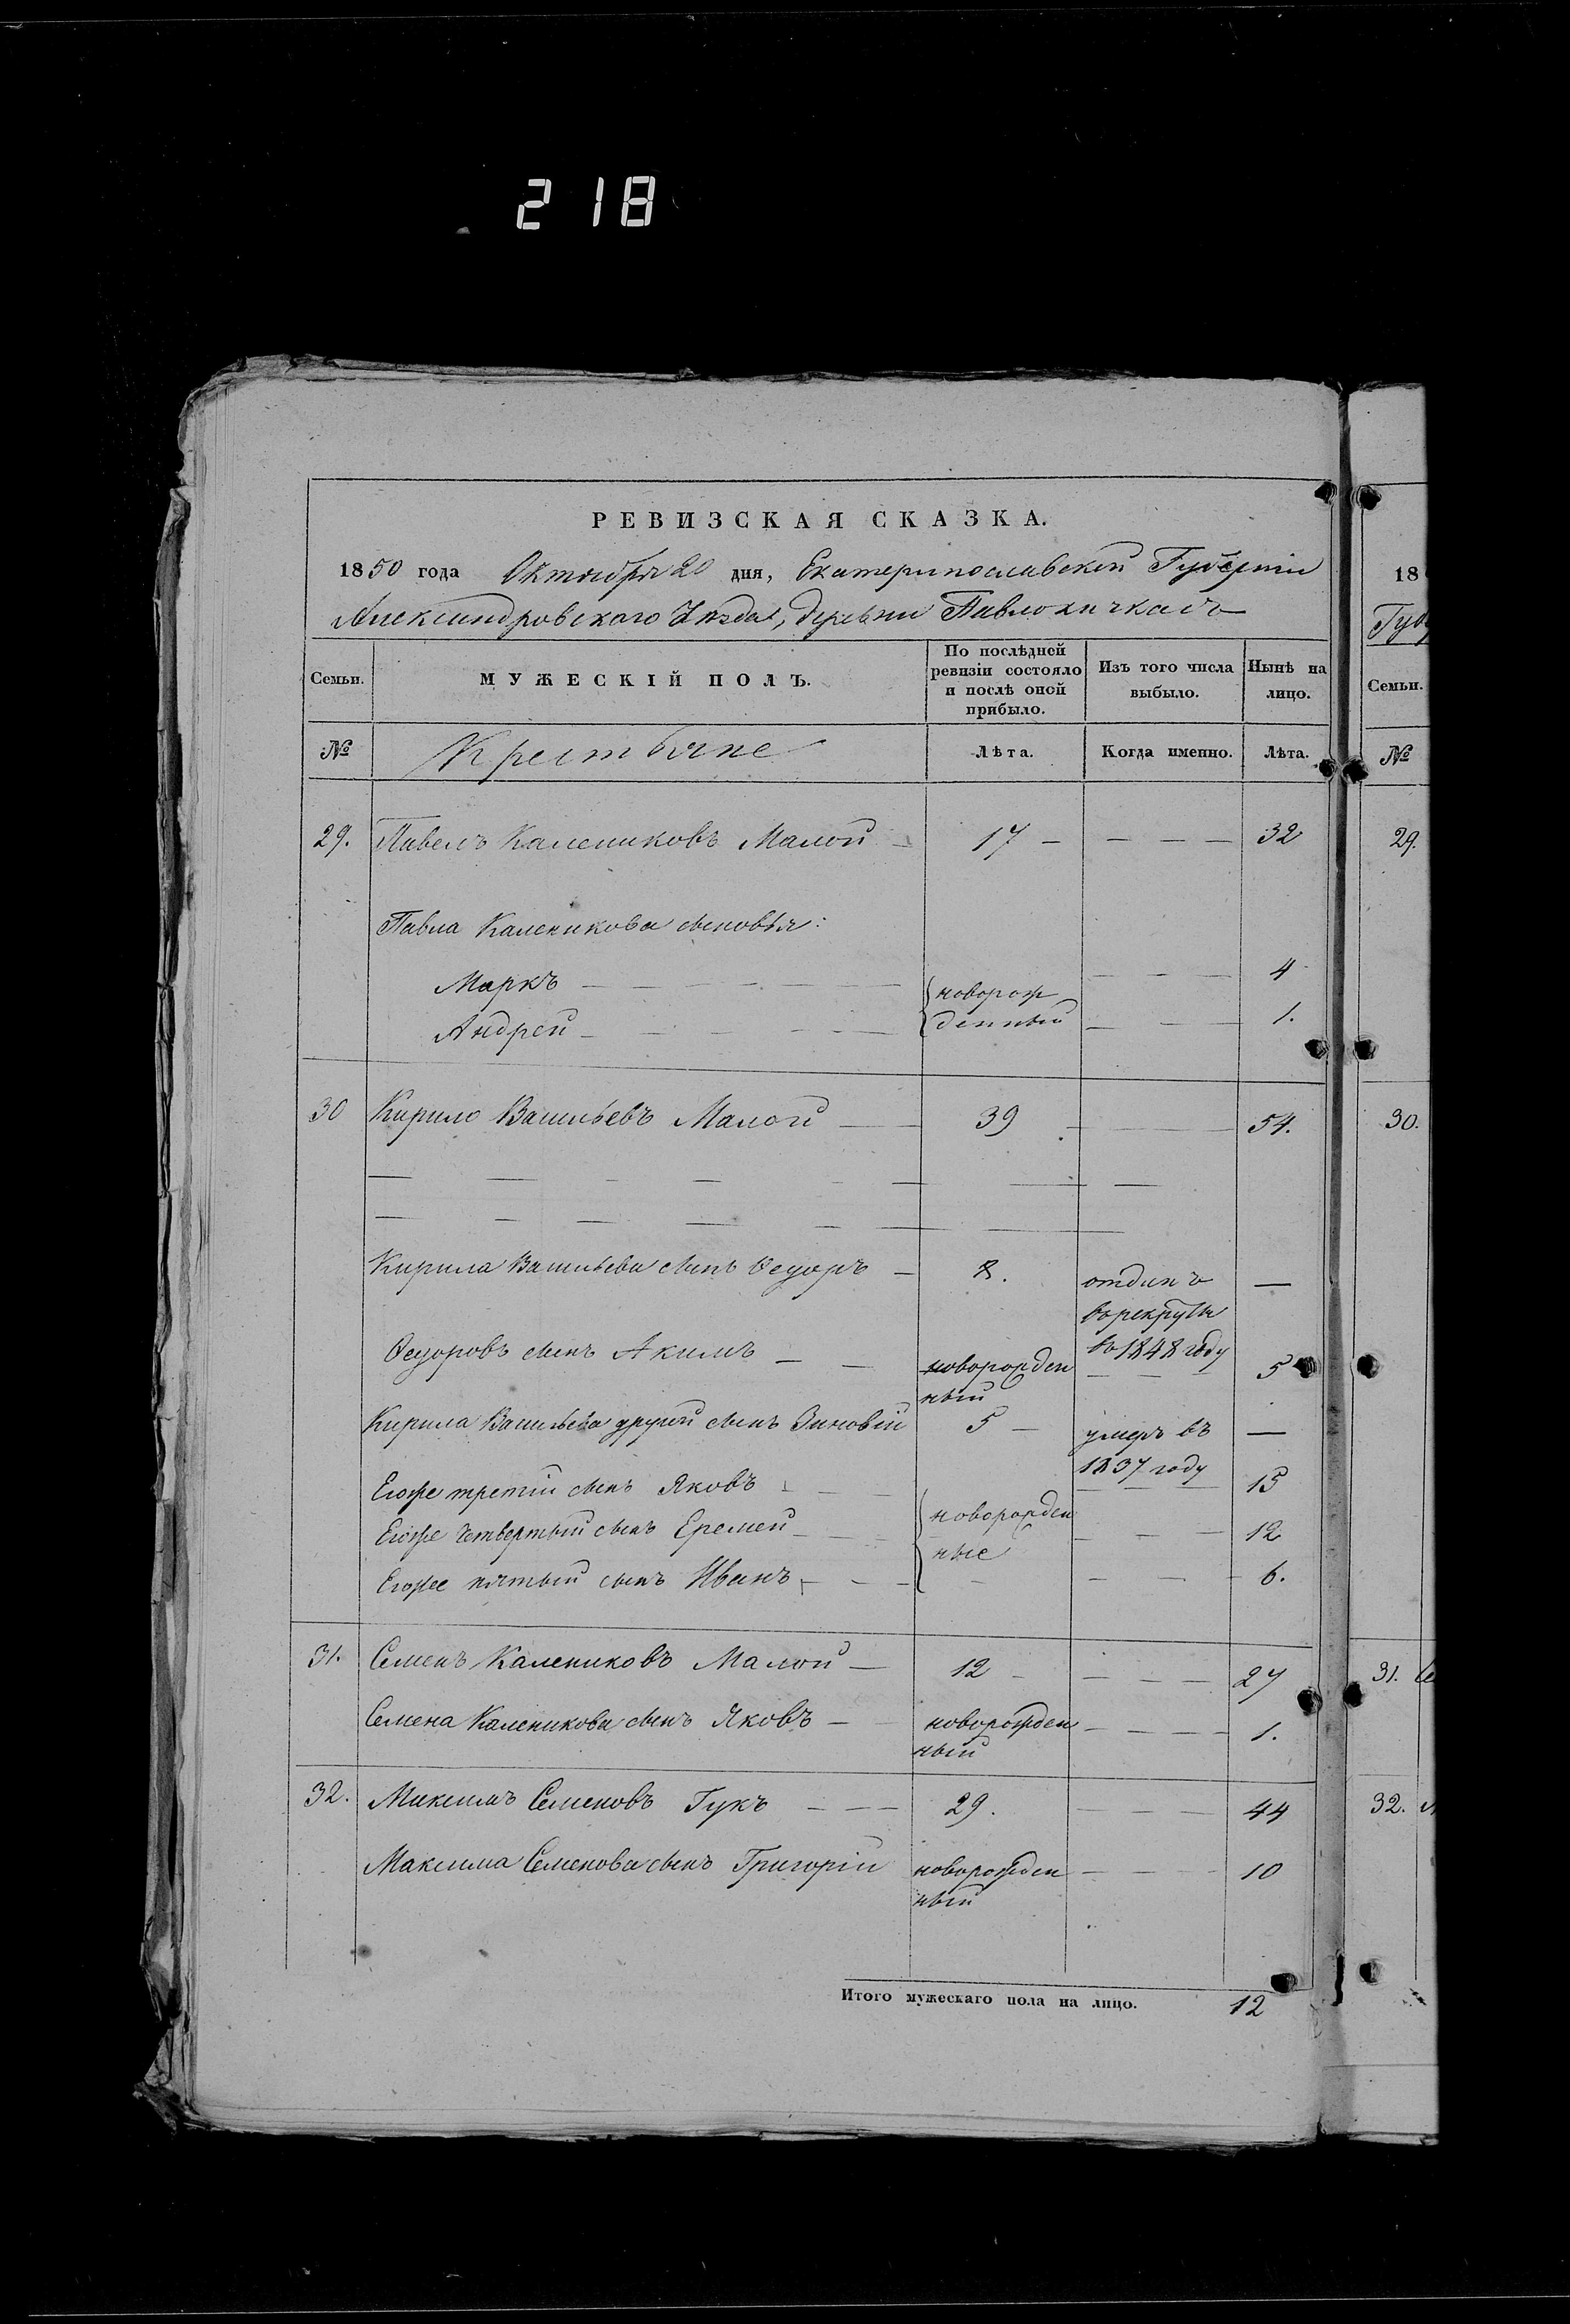 218
РЕВИЗСКАЯ СКАЗКА.
1850 года Октября 20 дня, Екатеринославской Губерніи
Александровского Уѣзда, деревни Павлокичкасъ
Семьи. МУЖЕСКІЙ ПОЛЪ. По послѣдней ревизіи состояло и послѣ оной прибыло. Изъ того числа выбыло. Нынѣ на лицо.
№ Крестьяне Лѣта. Когда именно. Лѣта.
29. Павелъ Калениковъ Малой 17 — — — — 32
Павла Каленикова сыновья:
Маркъ — — — — 4
новорож
Андрей — денный — — — 1.
30 Кирило Васильевъ Малой — 39 — — 54.
Кирила Васильева сынъ Ѳедоръ — 8. отданъ —
въ рекруты
Ѳедоровъ сынъ Акимъ — — новорожден въ 1848 году 5
ный
Кирила Васильева другой сынъ Зиновій 5 — умеръ въ —
1837 году
Егоже третій сынъ Яковъ — — — 13
новорожден
Егоже четвертый сынъ Еремей — — — 12
ные
Егоже пятый сынъ Иванъ — — — 6.
31. Семенъ Калениковъ Малой — 12 — — — 27
Семена Каленикова сынъ Яковъ — новорожден — — — 1.
ный
32. Максимъ Семеновъ Гукъ — — 29. — — — 44
Максима Семенова сынъ Григорій новорожден — — — 10
ный
Итого мужескаго пола на лицо. 12
18
Губ
Семьи.
№
29.
30.
31. Се
32. М